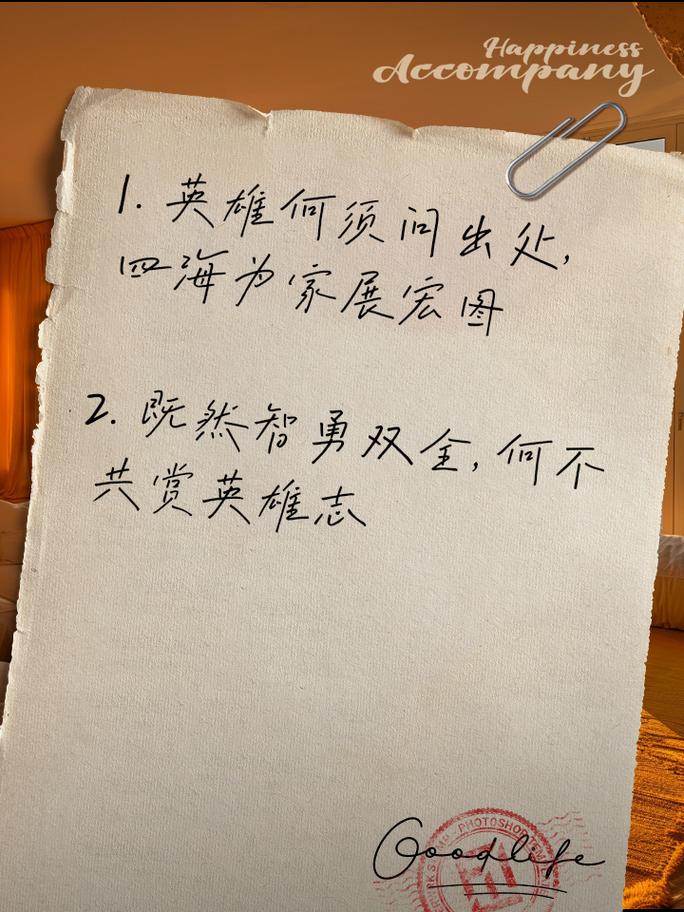 Happiness
Accompany
1. 英雄何须问出处,
四海为家展宏图
2. 既然智勇双全, 何不
共赏英雄志
PHOTOSHOP
Goodlife